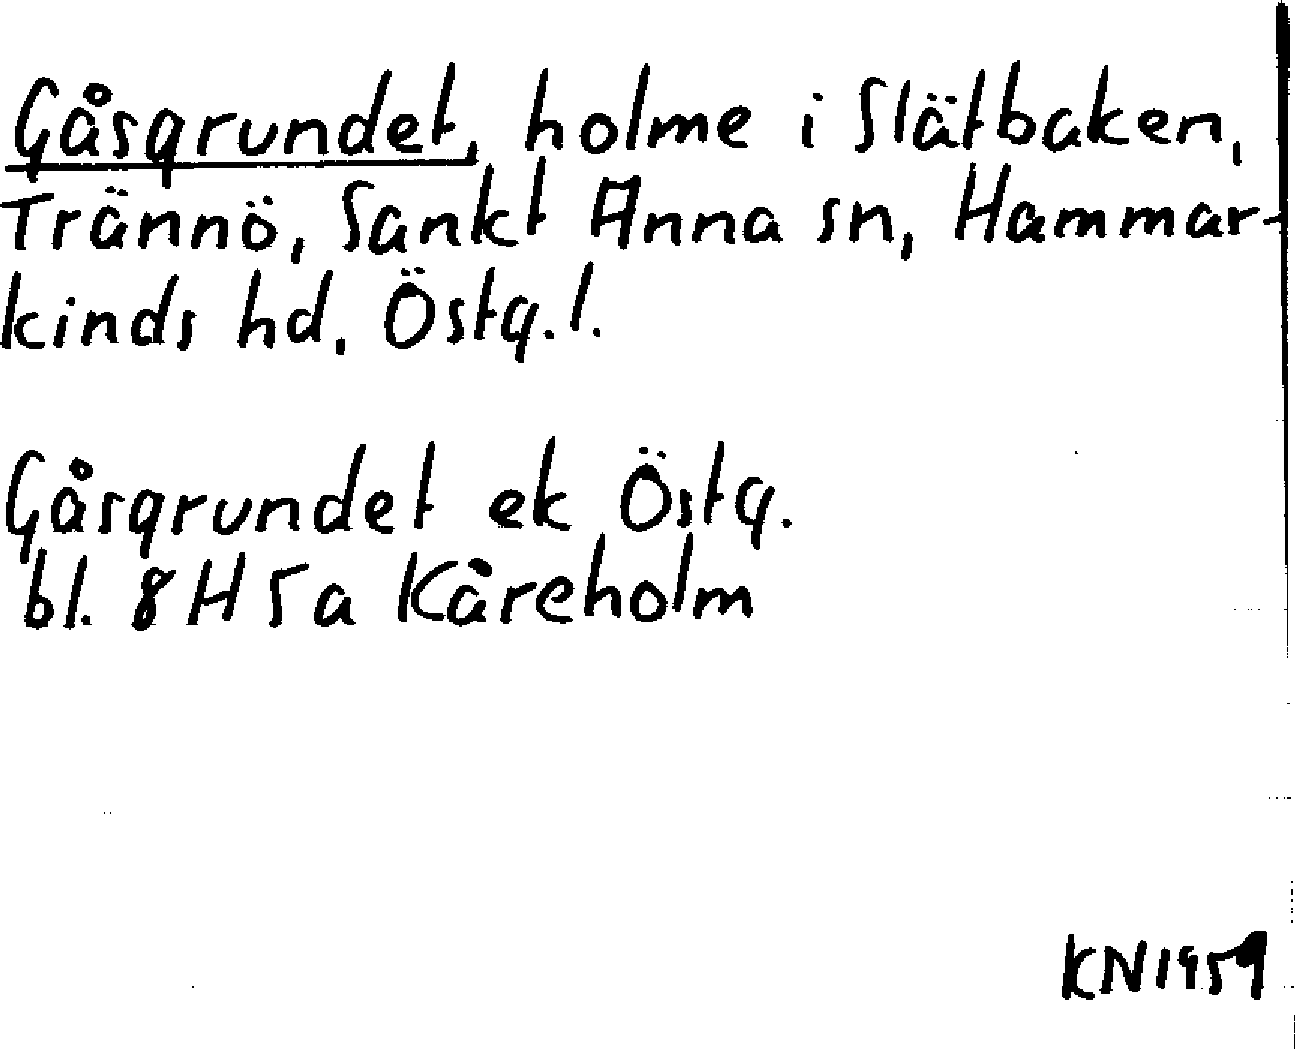 Gåsgrundet, holme i Slätbaken,
Trännö, Sankt Anna sn, Hammar-
kinds hd, Östg.l.
Gåsgrundet ek Östg.
bl. 8H5a Kåreholm
KN1959